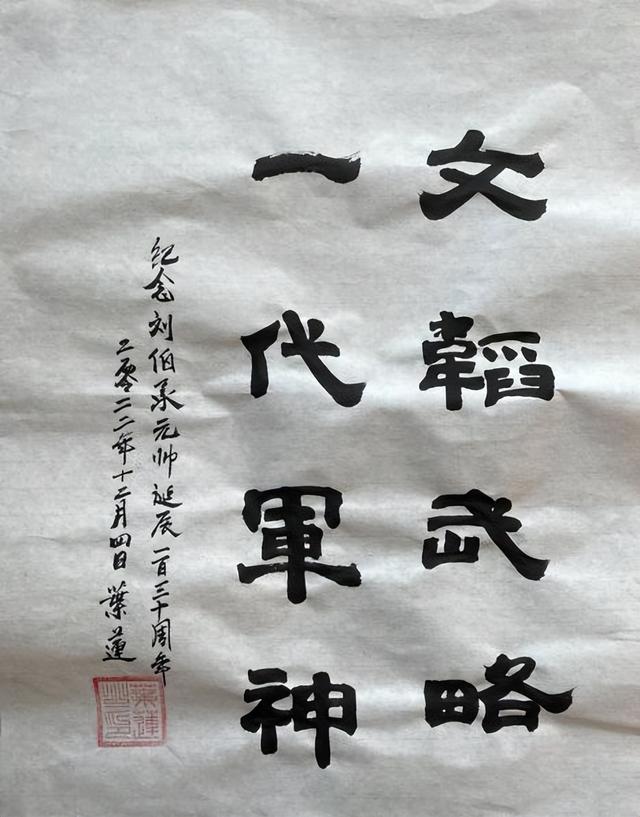 文韜武略
一代軍神
纪念刘伯承元帅诞辰一百三十周年
二零二二年十二月四日葉蓮
葉蓮